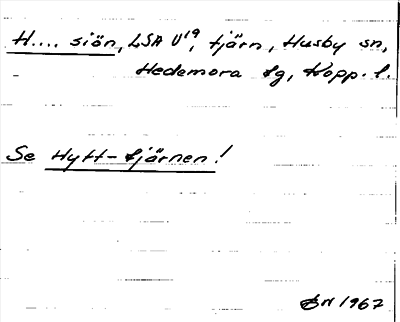 H.... siön, LSA U19, tjärn, Husby sn,
Hedemora fg, Kopp. l.
Se Hytt-tjärnen!
1967